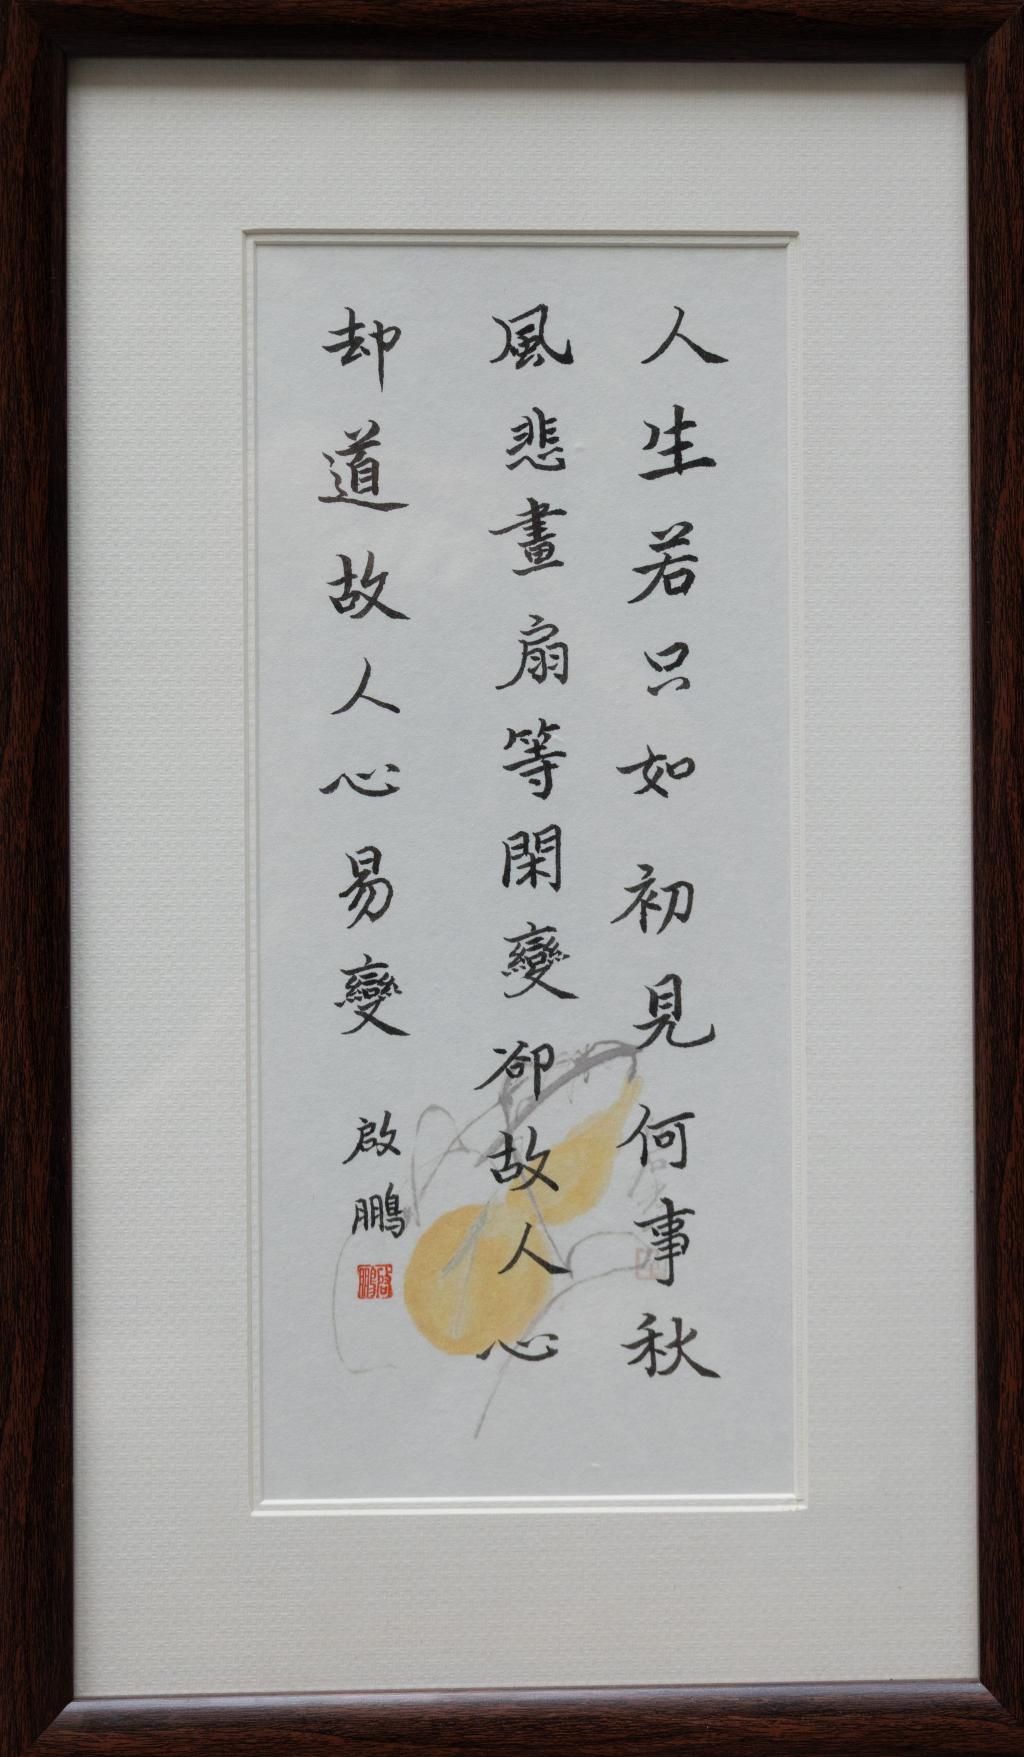 人生若只如初見何事秋
風悲畫扇等閑變卻故人心
却道故人心易變
啟鵬
啓鵬